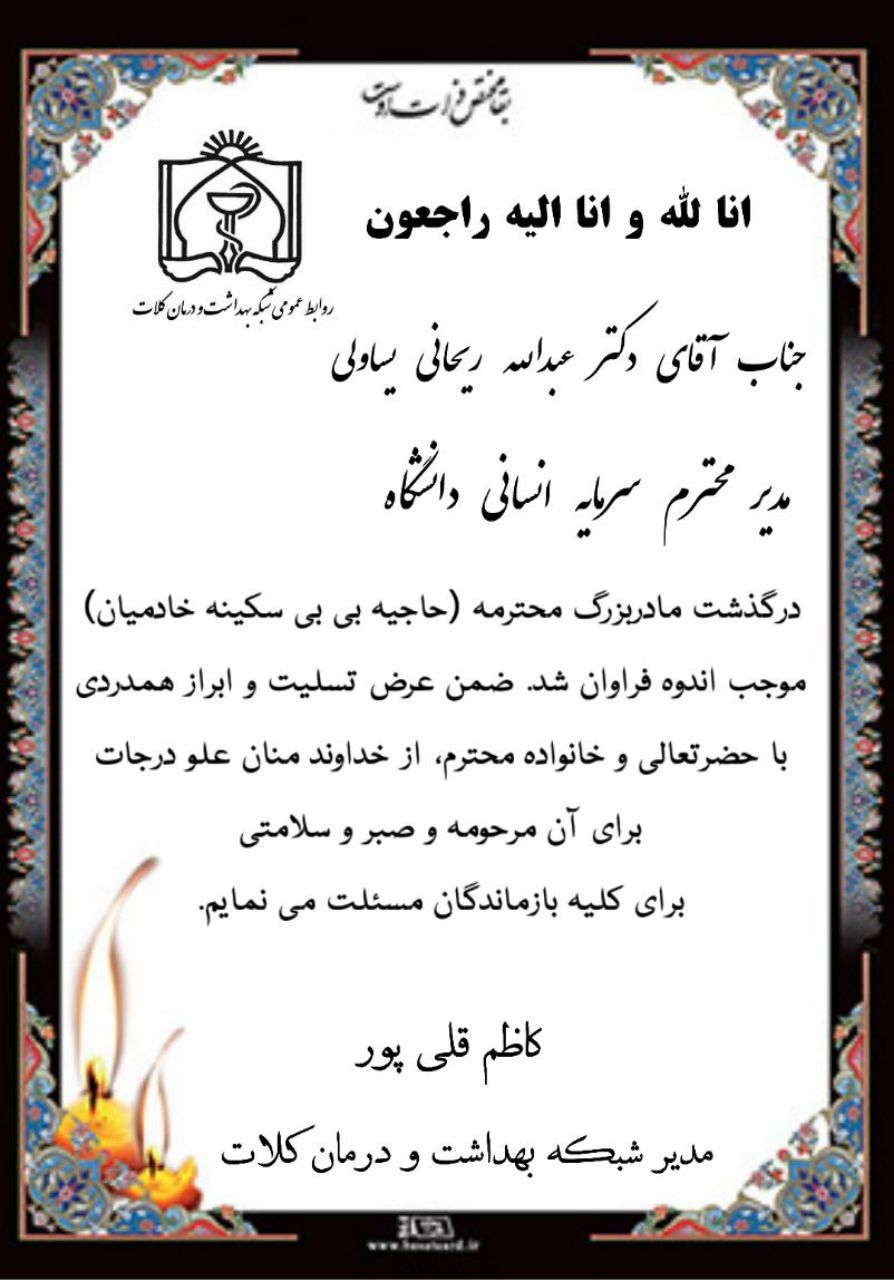 بقا مختص ذات اوست
انا لله و انا الیه راجعون
روابط عمومی شبکه بهداشت و درمان کلات
جناب آقای دکتر عبدالله ریحانی یساولی
مدیر محترم سرمایه انسانی دانشگاه
درگذشت مادربزرگ محترمه (حاجیه بی بی سکینه خادمیان)
موجب اندوه فراوان شد. ضمن عرض تسلیت و ابراز همدردی
با حضرتعالی و خانواده محترم، از خداوند منان علو درجات
برای آن مرحومه و صبر و سلامتی
برای کلیه بازماندگان مسئلت می نمایم.
کاظم قلی پور
مدیر شبکه بهداشت و درمان کلات